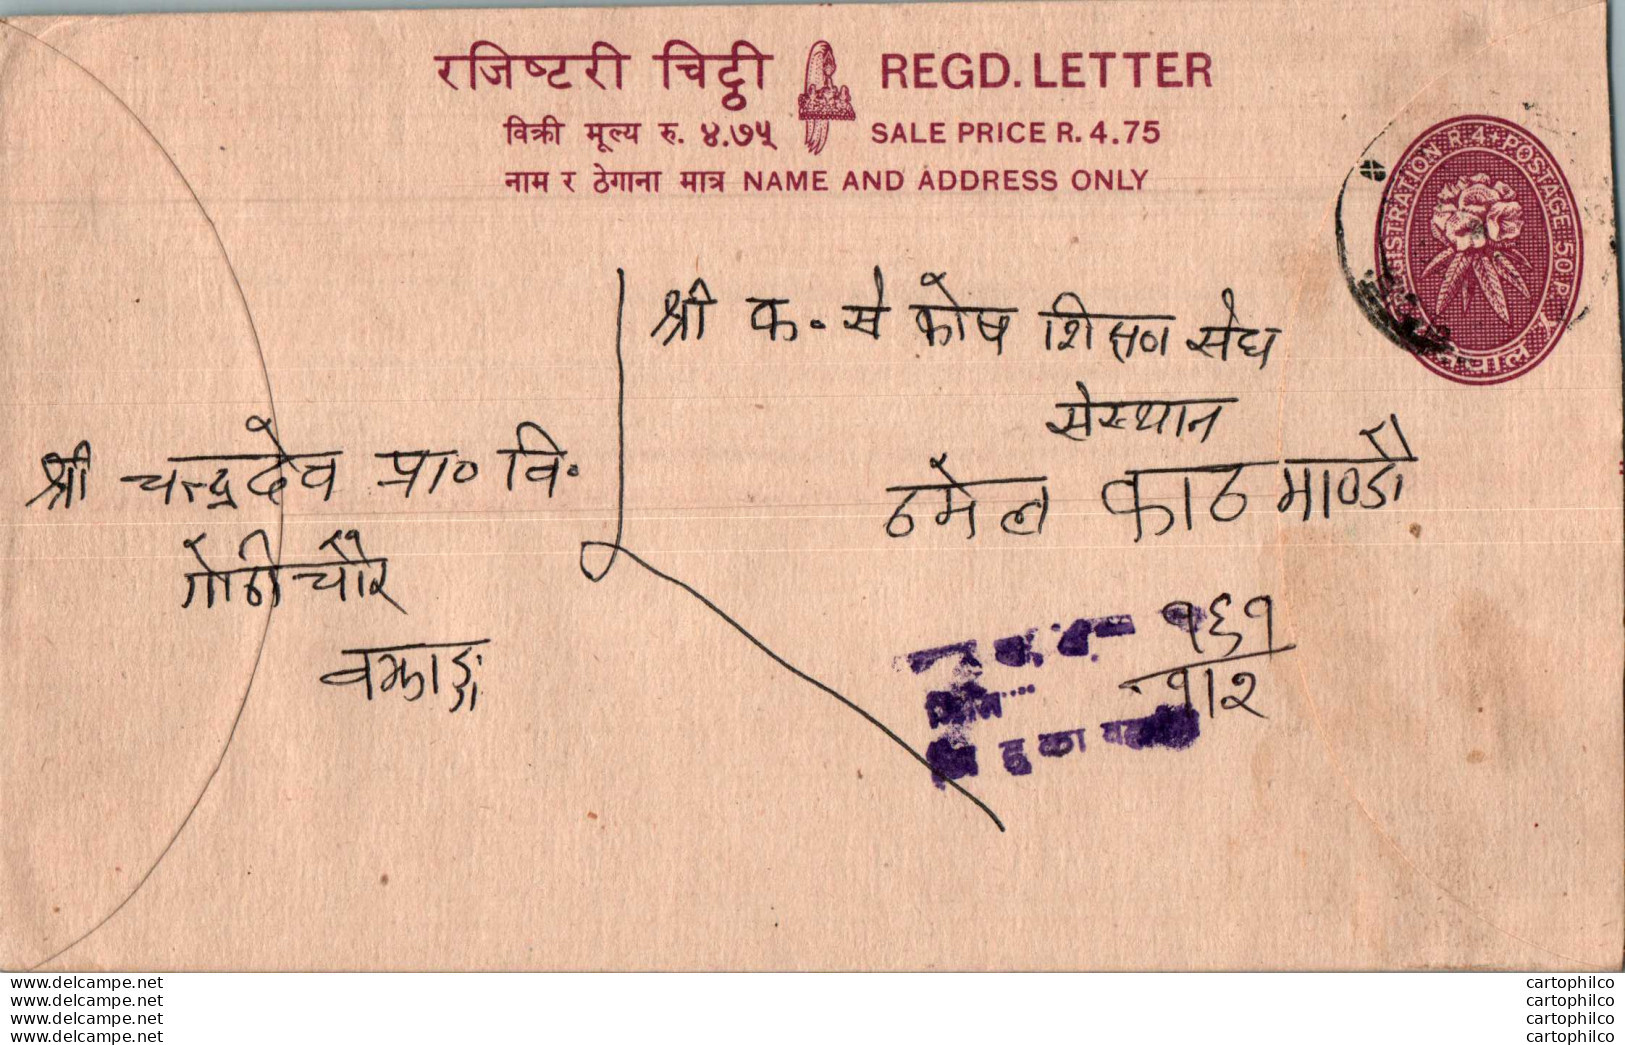 रजिष्टरी चिट्ठी REGD. LETTER
विक्री मूल्य रु. ४.७५ SALE PRICE R. 4.75
नाम र ठेगाना मात्र NAME AND ADDRESS ONLY
REGISTRATION R.4+POSTAGE 50 P.
नेपाल
श्री क. से कोष शिक्षण सेघ
सेस्थान
ठमेल काठमाण्डौ
श्री चन्द्रदेव प्रा० वि.
गोठी चौर
बझाङ्ग
१६१
www.delcampe.net
www.delcampe.net
www.delcampe.net
www.delcampe.net
cartophilco
cartophilco
cartophilco
cartophilco